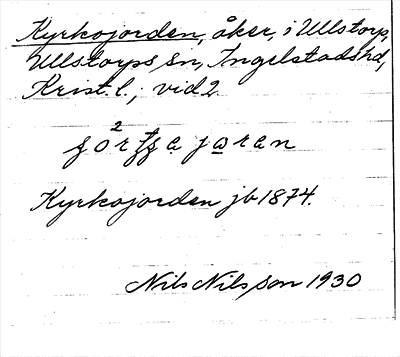 Kyrkojorden, åker, i Ullstorp,
Ullstorps sn, Ingelstads hd,
Krist. l.; vid 2.
Kyrkojorden jb 1874.
Nils Nilsson 1930